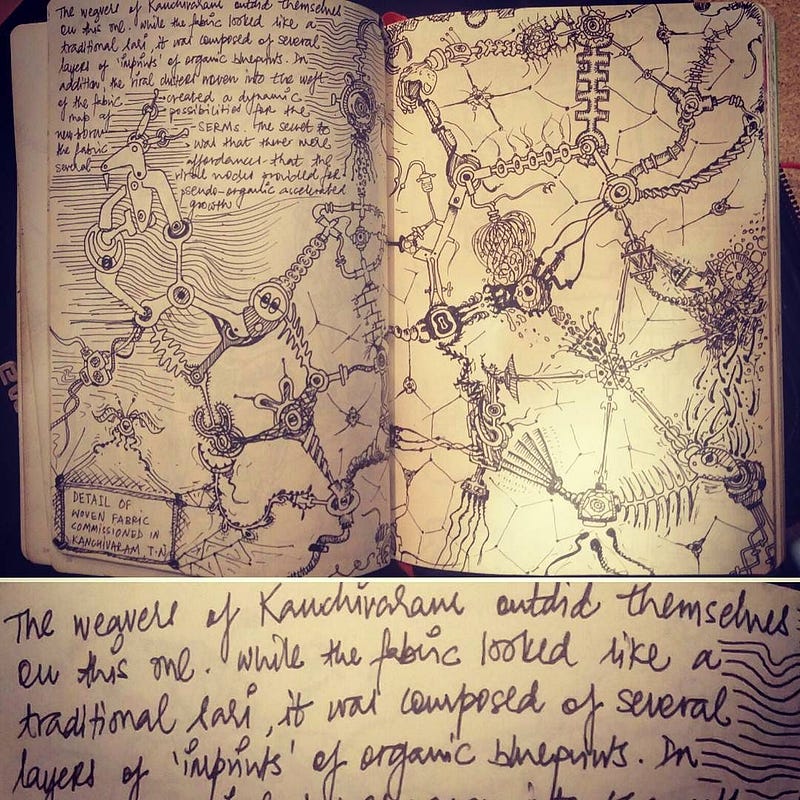 The weavers of Kanchivaram outdid themselves
on this one. While the fabric looked like a
traditional sari, it was composed of several
layers of 'imprints' of organic blueprints. In
addition, the viral clusters woven into the weft
of the fabric created a dynamic
map of possibilities for the
new-born SERMs. The secret to
the fabric was that there were
several affordances that the
viral nodes provided for
pseudo-organic accelerated
growth
DETAIL OF
WOVEN FABRIC
COMMISSIONED IN
KANCHIVARAM T.N
The weavers of Kanchivaram outdid themselves
on this one. While the fabric looked like a
traditional sari, it was composed of several
layers of 'imprints' of organic blueprints. In